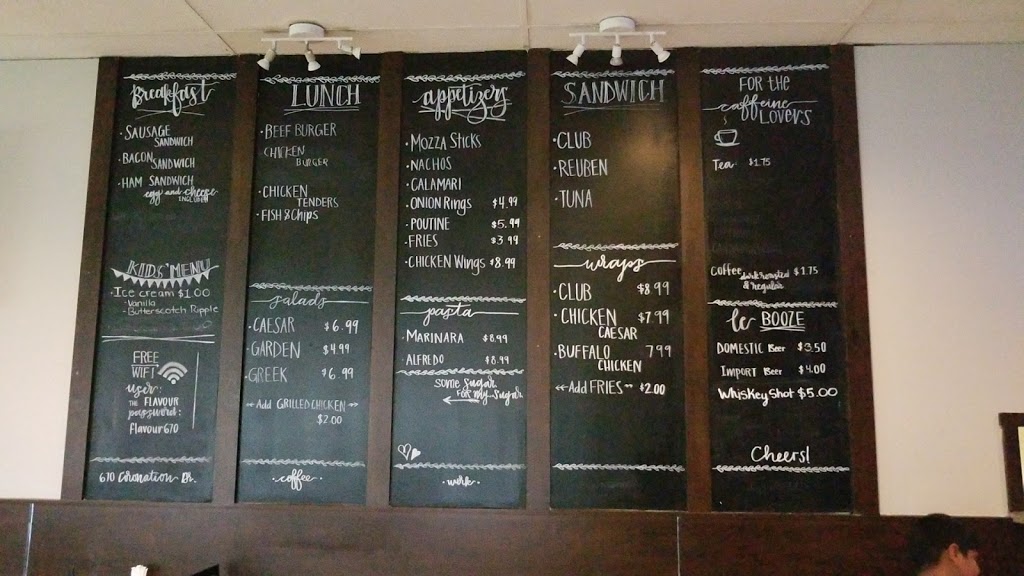 Breakfast
• SAUSAGE
SANDWICH
• BACON
SANDWICH
• HAM SANDWICH
egg and cheese
INCLUDED
KIDS' MENU
• Ice cream $1.00
- Vanilla
- Butterscotch Ripple
FREE
WIFI
user:
THE FLAVOUR
password:
Flavour670
670 Coronation Dr.
LUNCH
• BEEF BURGER
CHICKEN
BURGER
• CHICKEN
TENDERS
• FISH & Chips
salads
• CAESAR $6.99
• GARDEN $4.99
• GREEK $6.99
Add GRILLED CHICKEN
$2.00
• coffee •
appetizers
• MOZZA STICKS
• NACHOS
• CALAMARI
• ONION Rings $4.99
• POUTINE $5.99
• FRIES $3.99
• CHICKEN Wings $8.99
pasta
• MARINARA $8.99
ALFREDO $8.99
SOME Sugar
FOR My Sugar
SANDWICH
• CLUB
• REUBEN
• TUNA
wraps
• CLUB $8.99
• CHICKEN $7.99
CAESAR
• BUFFALO 7.99
CHICKEN
Add FRIES $2.00
FOR the
caffeine
LOVERS
Tea $1.75
Coffee dark roasted $1.75
& Regular
le BOOZE
DOMESTIC Beer $3.50
IMPORT Beer $4.00
Whiskey Shot $5.00
Cheers!